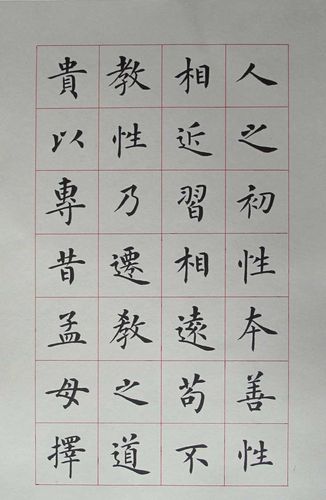 人之初性本善性
相近習相遠苟不
教性乃遷教之道
貴以專昔孟母擇